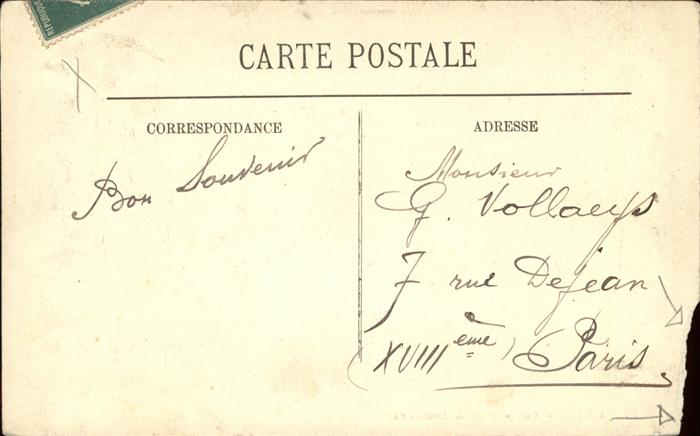 CARTE POSTALE
CORRESPONDANCE
Bon Souvenir
ADRESSE
Monsieur
G. Vollaeys
7 rue Dejean
(XVIIIème) Paris